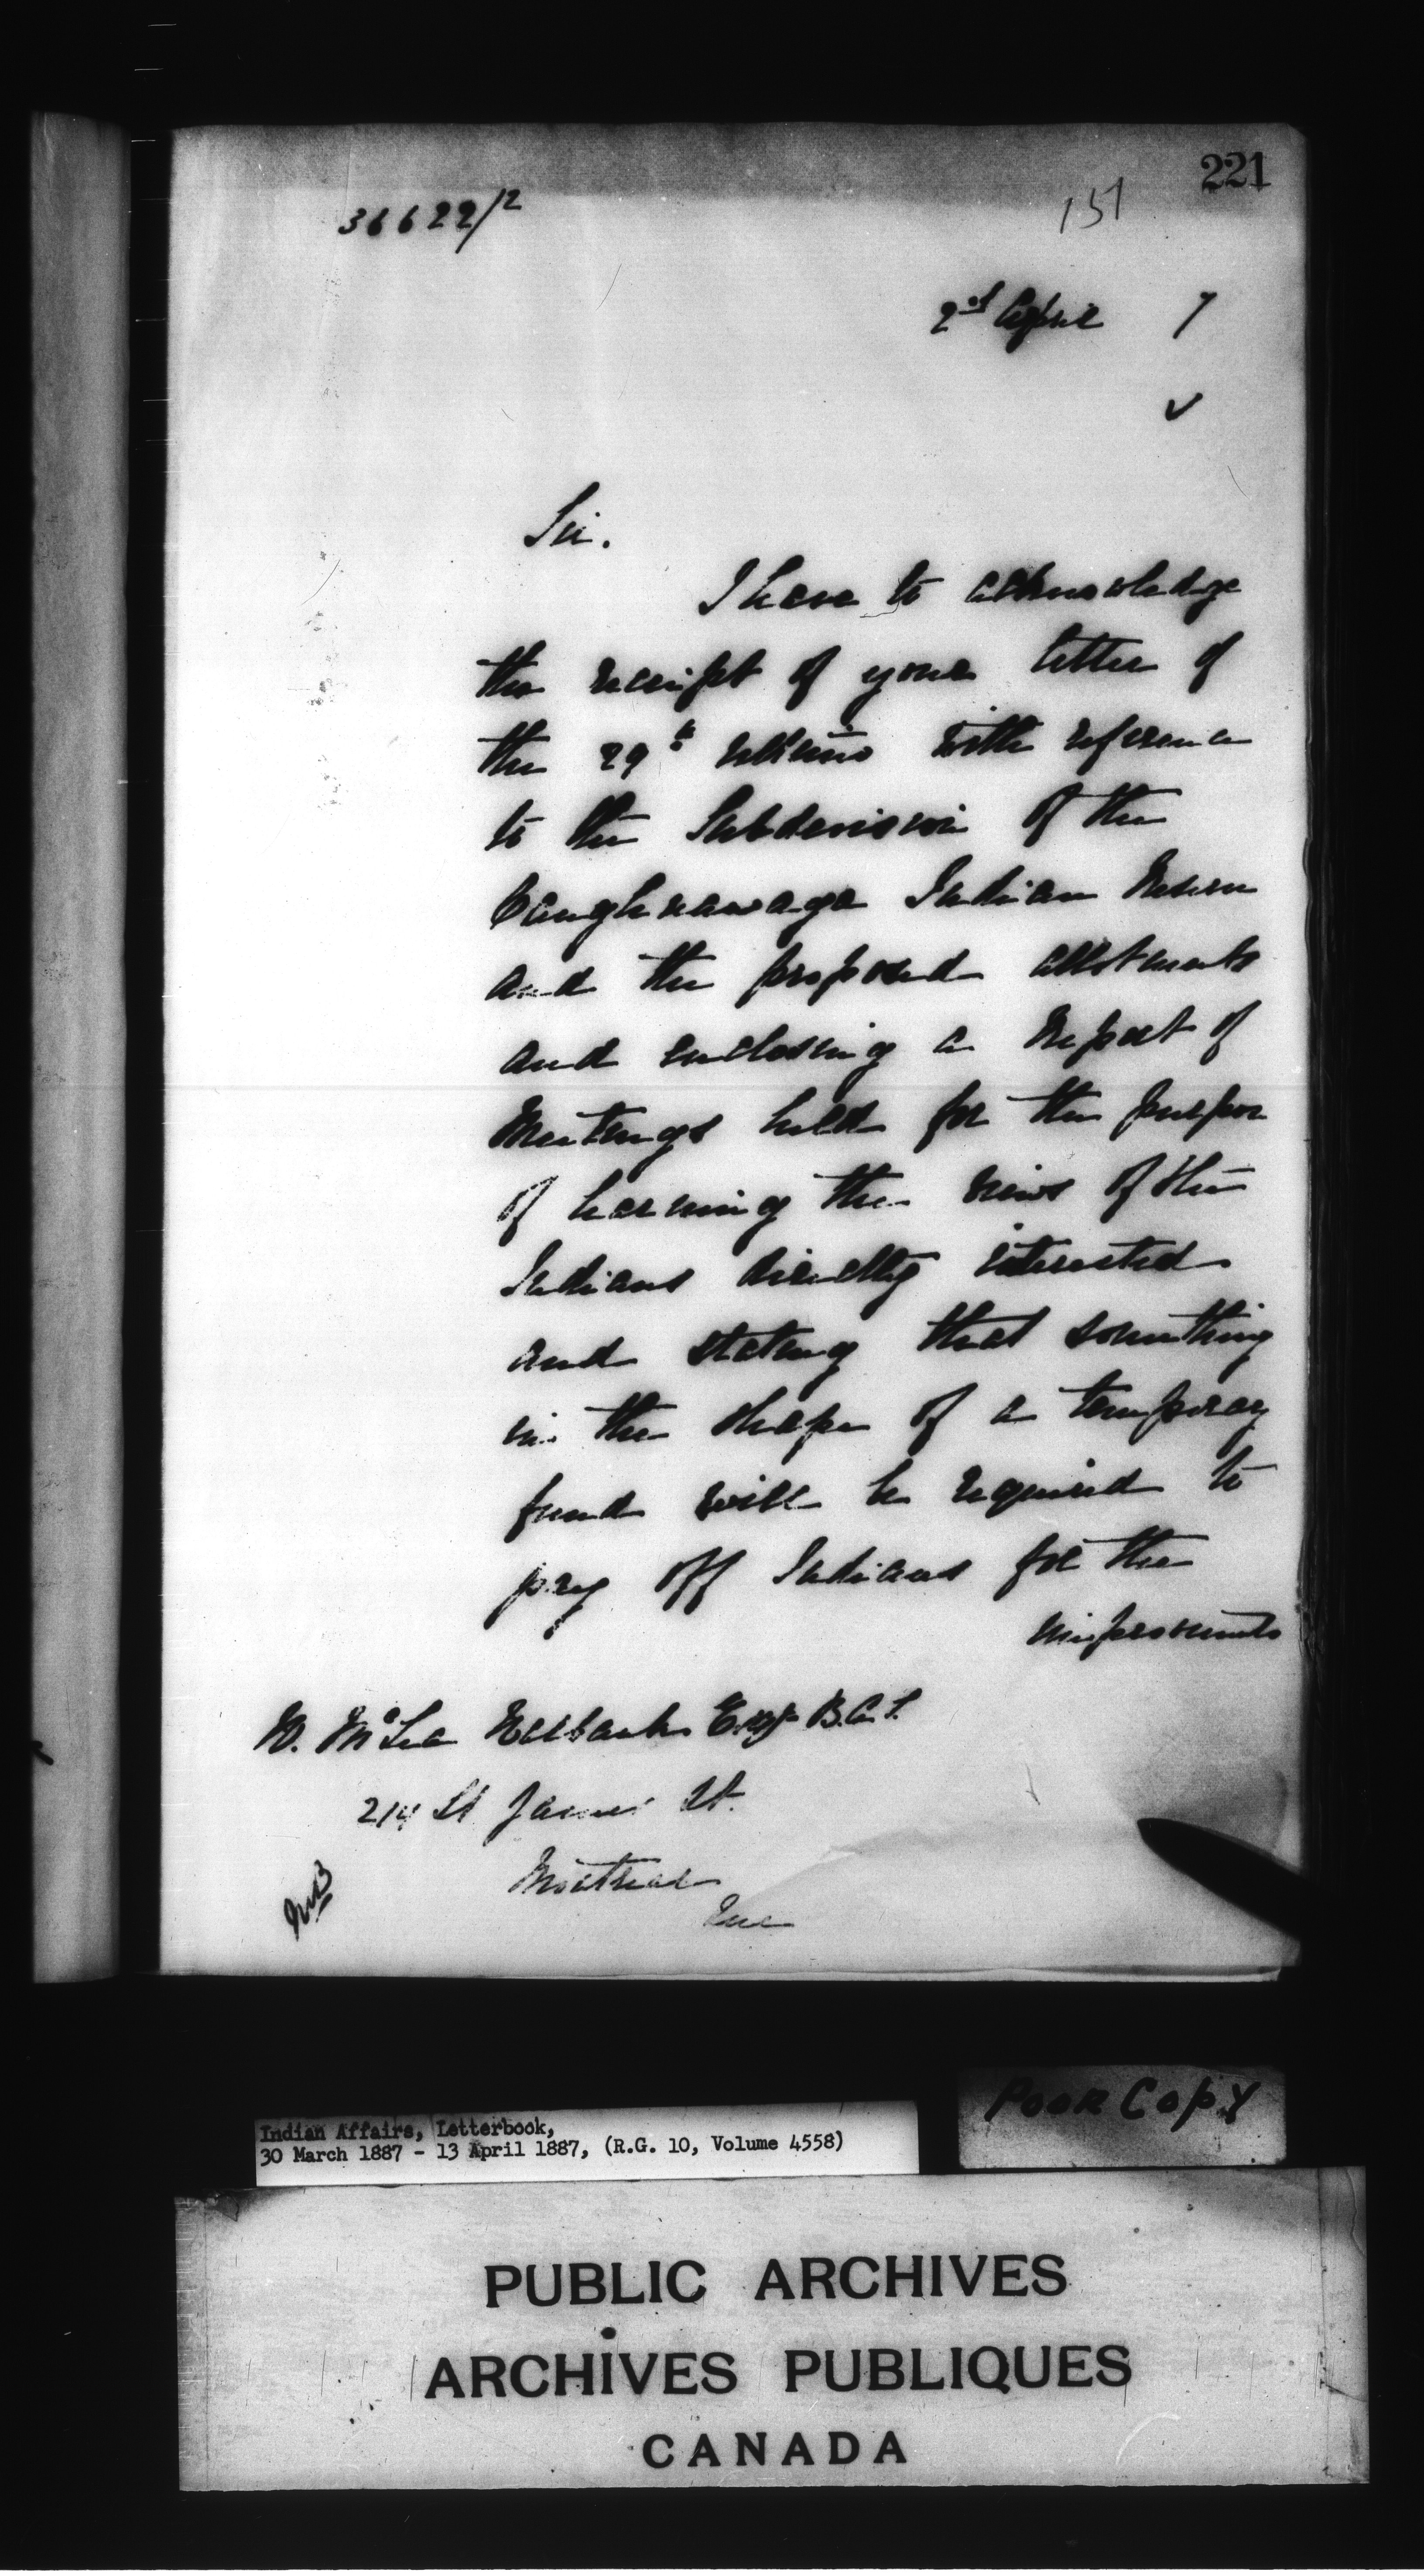 221
36622/2
151
2nd April 7
Sir.
I have to acknowledge
the receipt of your letter of
the 29th ultimo with reference
to the Subdivision of the
Caughnawaga Indian Reserve
and the proposed allotments
and enclosing a Report of
Meetings held for the purpose
of learning the views of the
Indians directly interested
and stating that something
in the shape of a temporary
fund will be required to
pay off Indians for the
improvements
W. McLea Walbank Esq B.A.S.
214 St James St.
Montreal
Que
Poor Copy
Indian Affairs, Letterbook,
30 March 1887 - 13 April 1887, (R.G. 10, Volume 4558)
PUBLIC ARCHIVES
ARCHIVES PUBLIQUES
CANADA